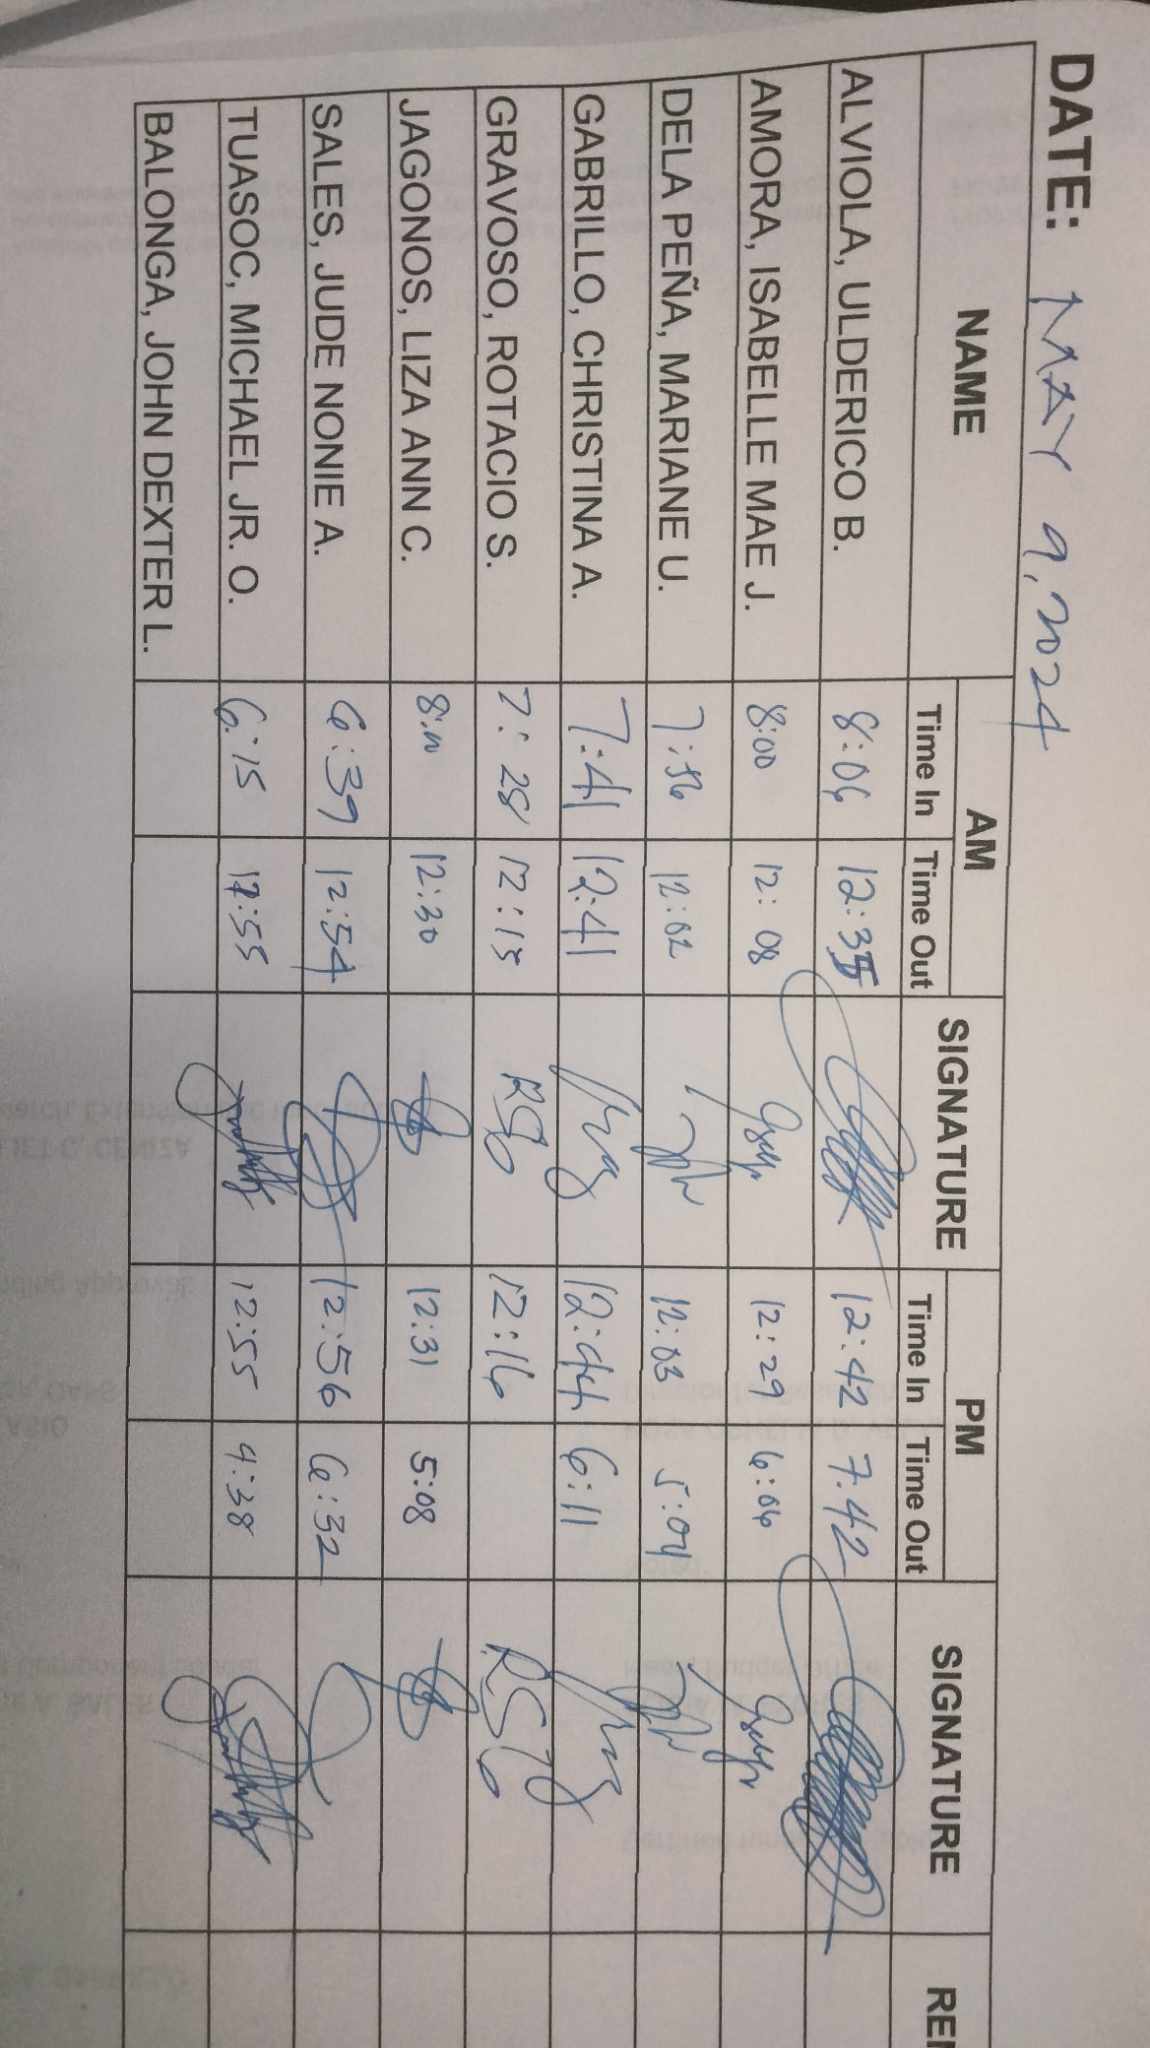 DATE: MAY 9, 2024
NAME AM SIGNATURE PM SIGNATURE
Time In Time Out Time In Time Out
ALVIOLA, ULDERICO B. 8:06 12:42 7:42
AMORA, ISABELLE MAE J. 8:00 12:08 12:29 6:06
DELA PEÑA, MARIANE U. 7:56 12:02 12:03 5:04
GABRILLO, CHRISTINA A. 7:41 12:41 12:44 6:11
GRAVOSO, ROTACIO S. 7:28 12:15 12:16
JAGONOS, LIZA ANN C. 12:30 12:31 5:08
SALES, JUDE NONIE A. 6:39 12:54 12:56 6:32
TUASOC, MICHAEL JR. O. 6:15 12:55 12:55 4:38
BALONGA, JOHN DEXTER L.